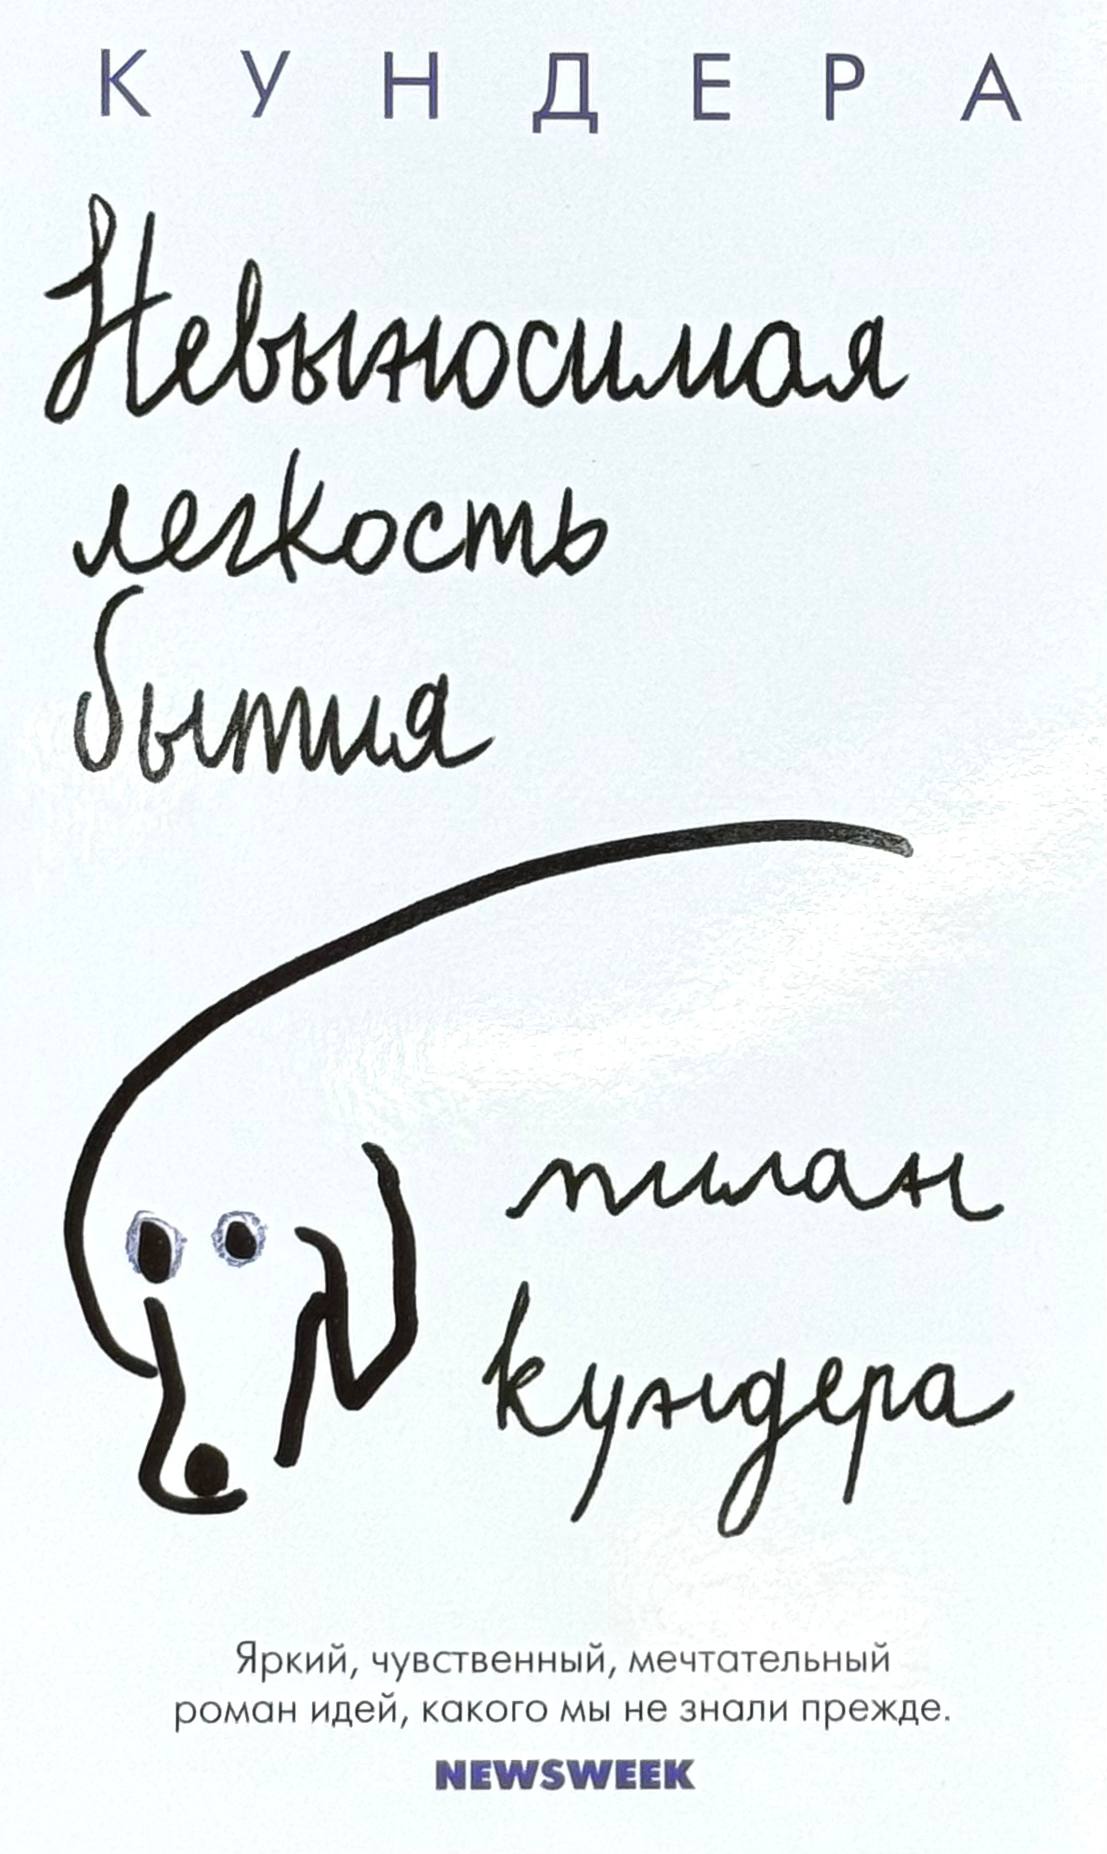 КУНДЕРА
Невыносимая
легкость
бытия
милан
кундера
Яркий, чувственный, мечтательный
роман идей, какого мы не знали прежде.
NEWSWEEK